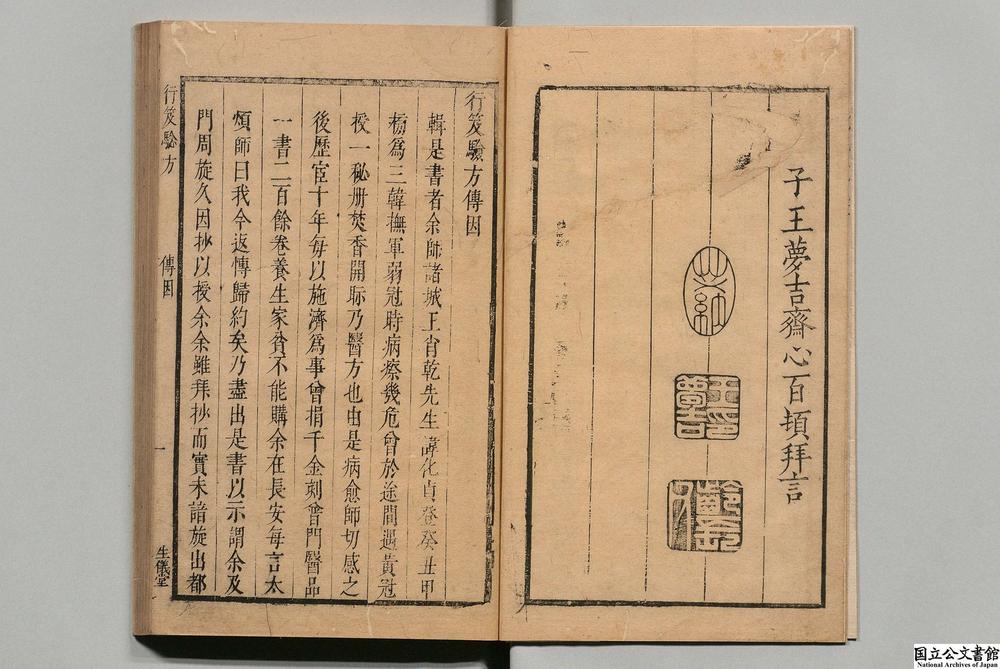 子王夢吉齋心百頓拜言
王印夢吉
行笈驗方傳因
輯是書者余師諸城王肖乾先生諱化貞登癸丑甲
榜爲三韓撫軍弱冠時病瘵幾危曾於途間遇黃冠
授一秘册焚香開眎乃醫方也由是病愈師切感之
後歷宦十年每以施濟爲事曾捐千金刻曾門醫品
一書二百餘卷養生家貧不能購余在長安每言太
煩師曰我今返博歸約矣乃盡出是書以示謂余及
門周旋久因抄以授余余雖拜抄而實未諳旋出都
行笈驗方
傳因
一
生儀堂
国立公文書館
National Archives of Japan